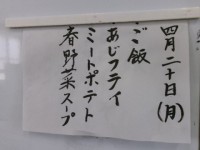 四月二十日(月)
ご飯
あじフライ
ミートポテト
春野菜スープ